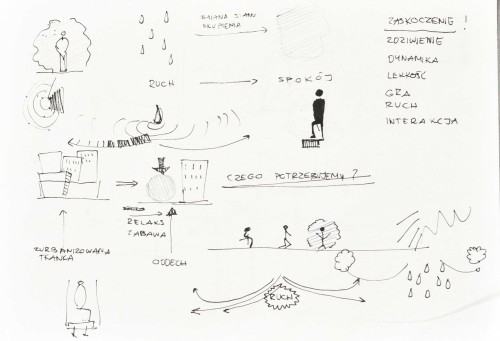 ZMIANA STANU
SKUPIENIA
RUCH
SPOKÓJ
ZASKOCZENIE !
ZDZIWIENIE
DYNAMIKA
LEKKOŚĆ
GRA
RUCH
INTERAKCJA
CZEGO POTRZEBUJEMY ?
RELAKS
ZABAWA
ODDECH
ZURBANIZOWANA
TKANKA
RUCH